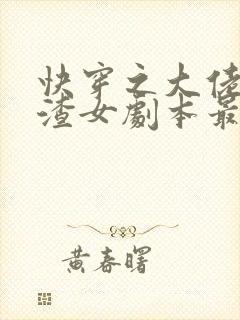 快穿之大佬
渣女劇本最
黃春曙